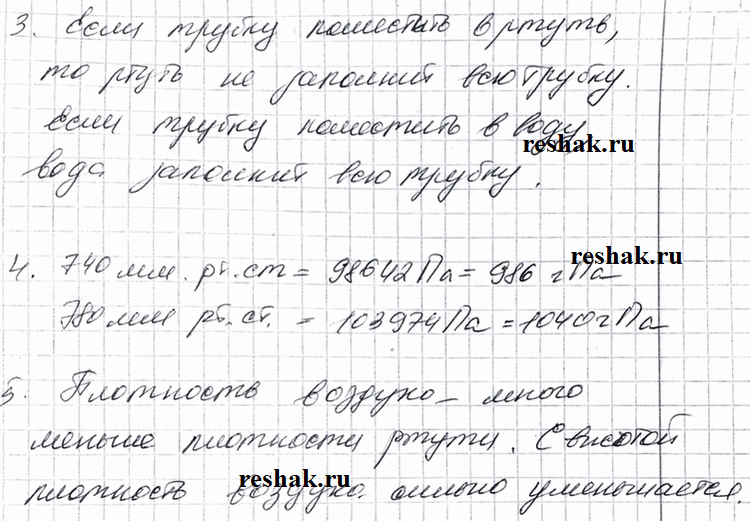 3. Если трубку поместить в ртуть,
то ртуть не заполнит всю трубку.
Если трубку поместить в воду
reshak.ru
вода заполнит всю трубку.
reshak.ru
4. 740 мм. рт. ст = 98642 Па = 986 гПа
780 мм рт. ст. = 103974 Па = 1040 гПа
5. Плотность воздуха много
меньше плотности ртути. С высотой
reshak.ru
плотность воздуха сильно уменьшается.